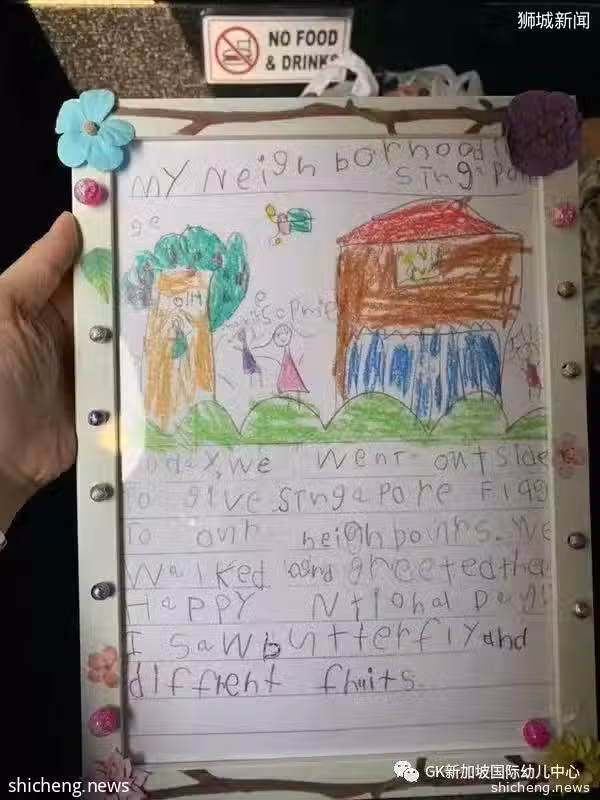 狮城新闻
NO FOOD
& DRINKS
MY Neighborhood
singapo
Sophie
oday, we went outside
To give singapore Flag
To our neighbours. We
Walked and greeted the
Happy Ntional Day!
I saw butterfly and
diffrent fruits.
GK新加坡国际幼儿中心
shicheng.news
shicheng.news